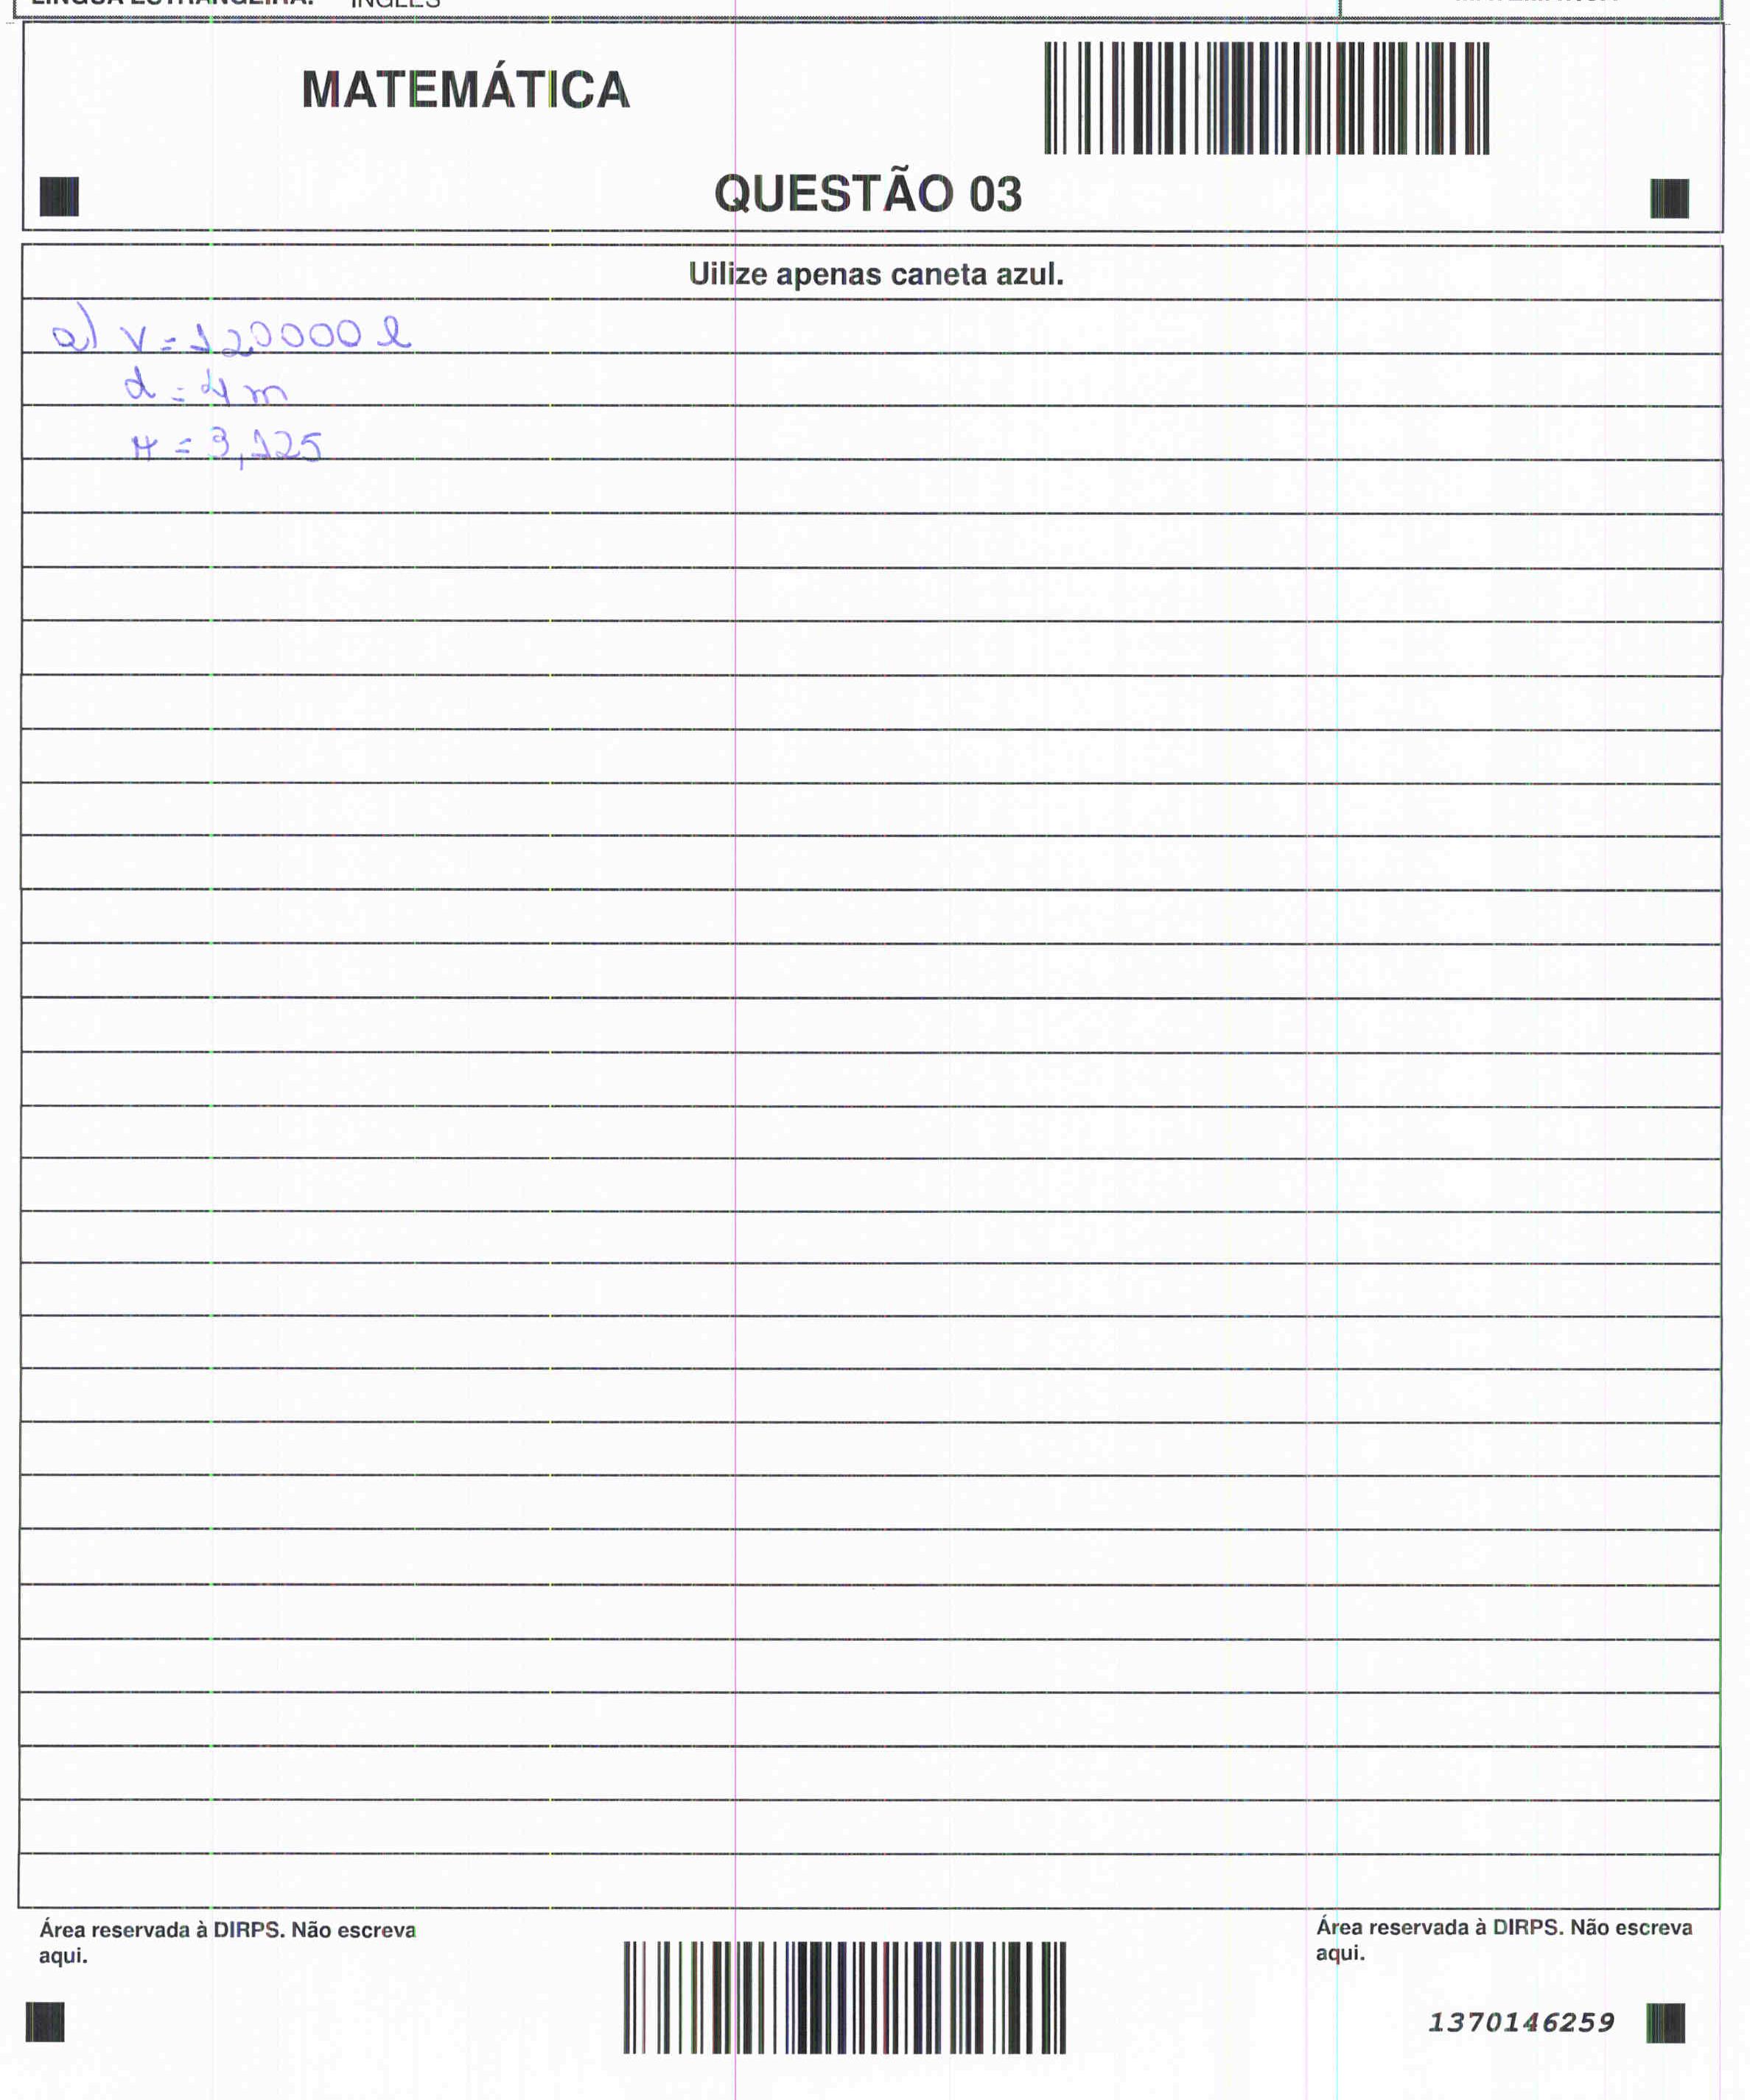 LÍNGUA ESTRANGEIRA: INGLÊS
MATEMÁTICA
QUESTÃO 03
Uilize apenas caneta azul.
a) V = 120000 l
d = 4 m
π = 3,125
Área reservada à DIRPS. Não escreva
aqui.
Área reservada à DIRPS. Não escreva
aqui.
1370146259